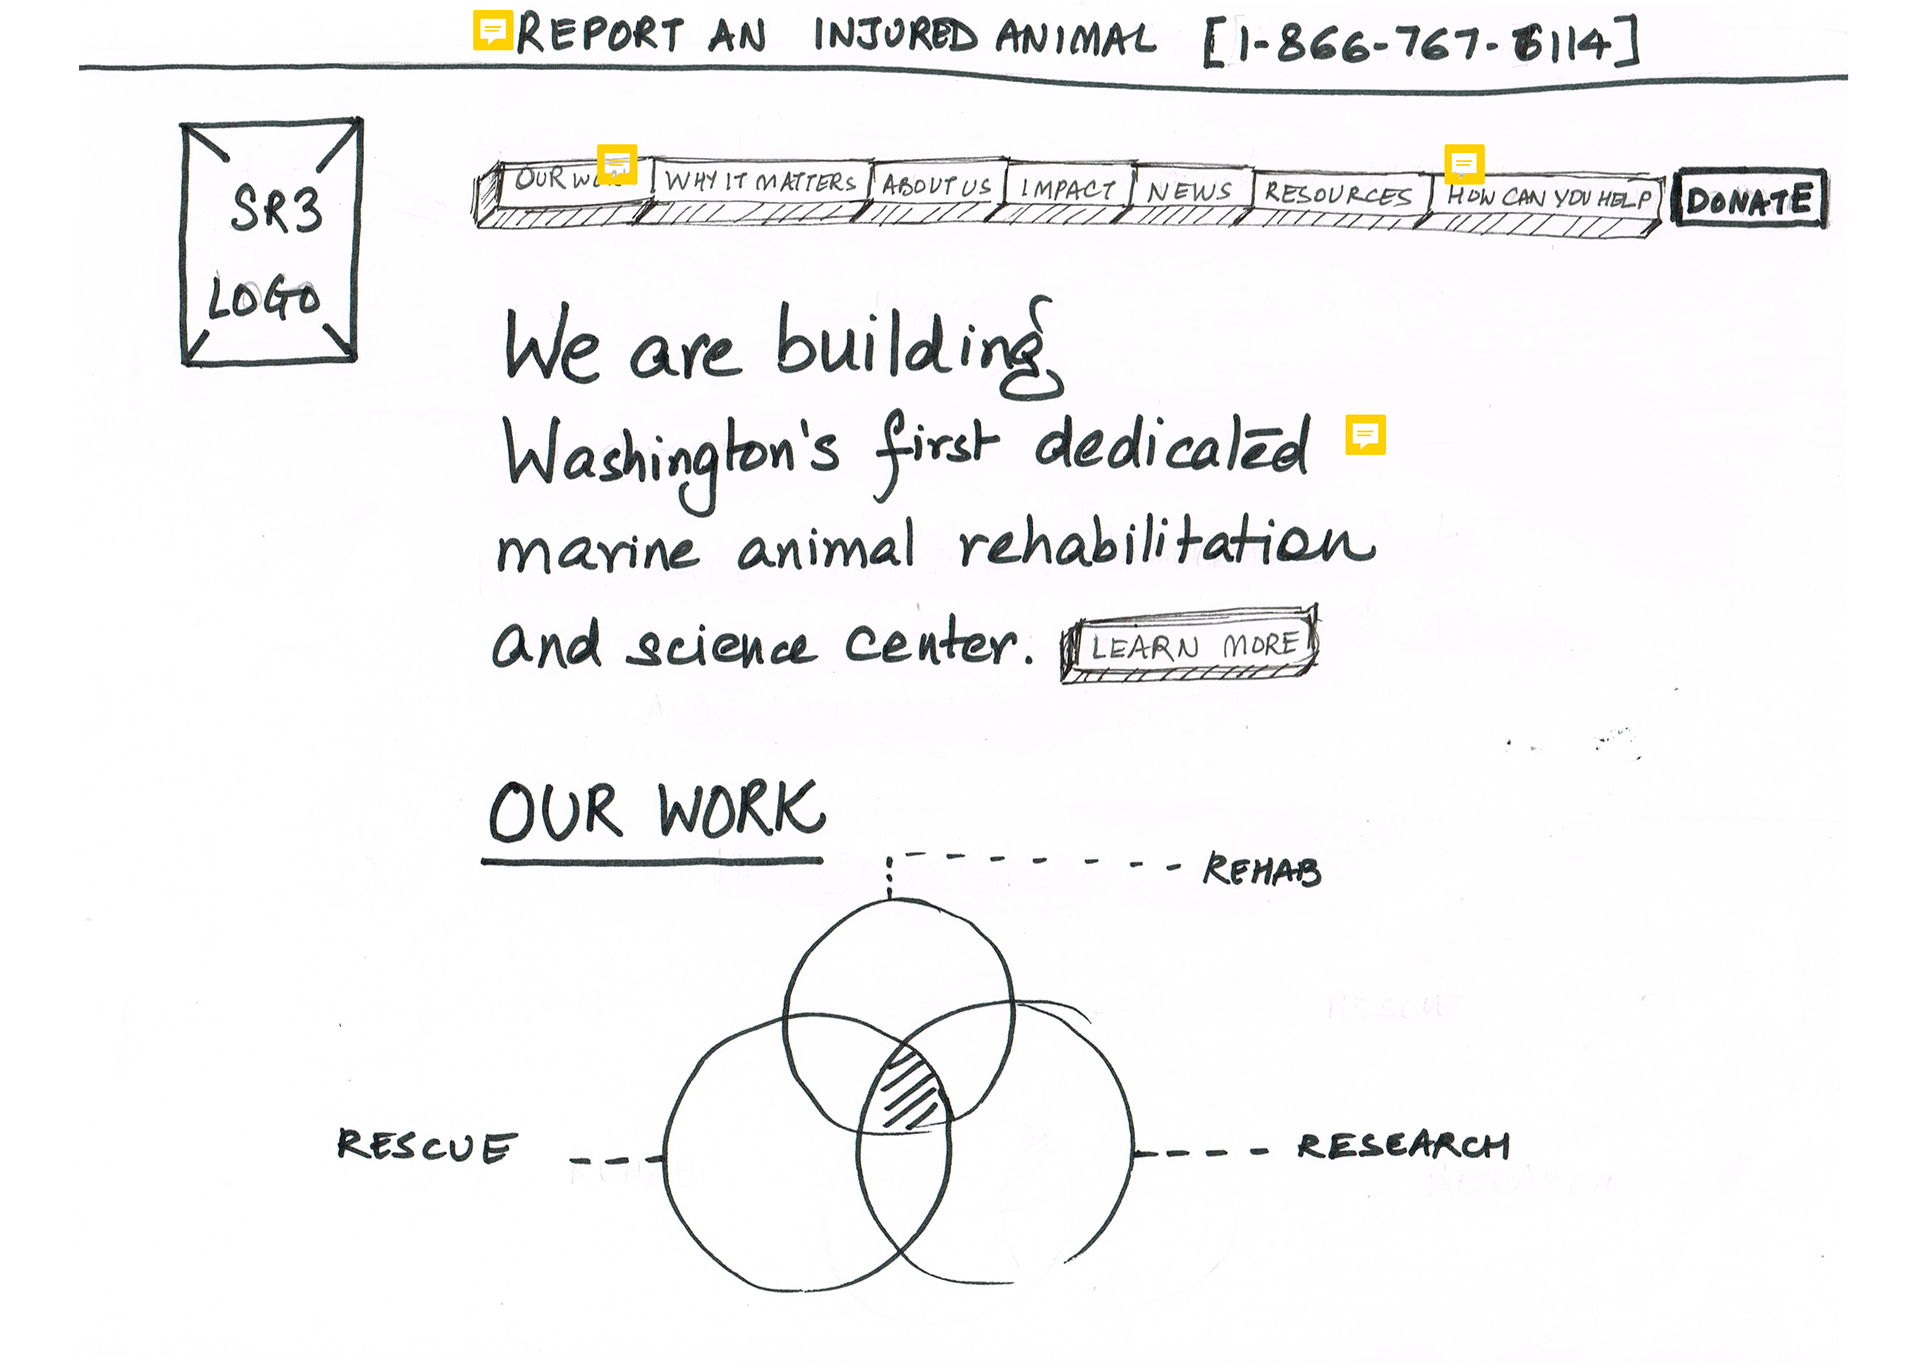 REPORT AN INJURED ANIMAL [1-866-767-6114]
SR3
LOGO
OUR WORK
WHY IT MATTERS
ABOUT US
IMPACT
NEWS
RESOURCES
HOW CAN YOU HELP
DONATE
We are building
Washington's first dedicated
marine animal rehabilitation
and science center. LEARN MORE
OUR WORK
REHAB
RESCUE
RESEARCH